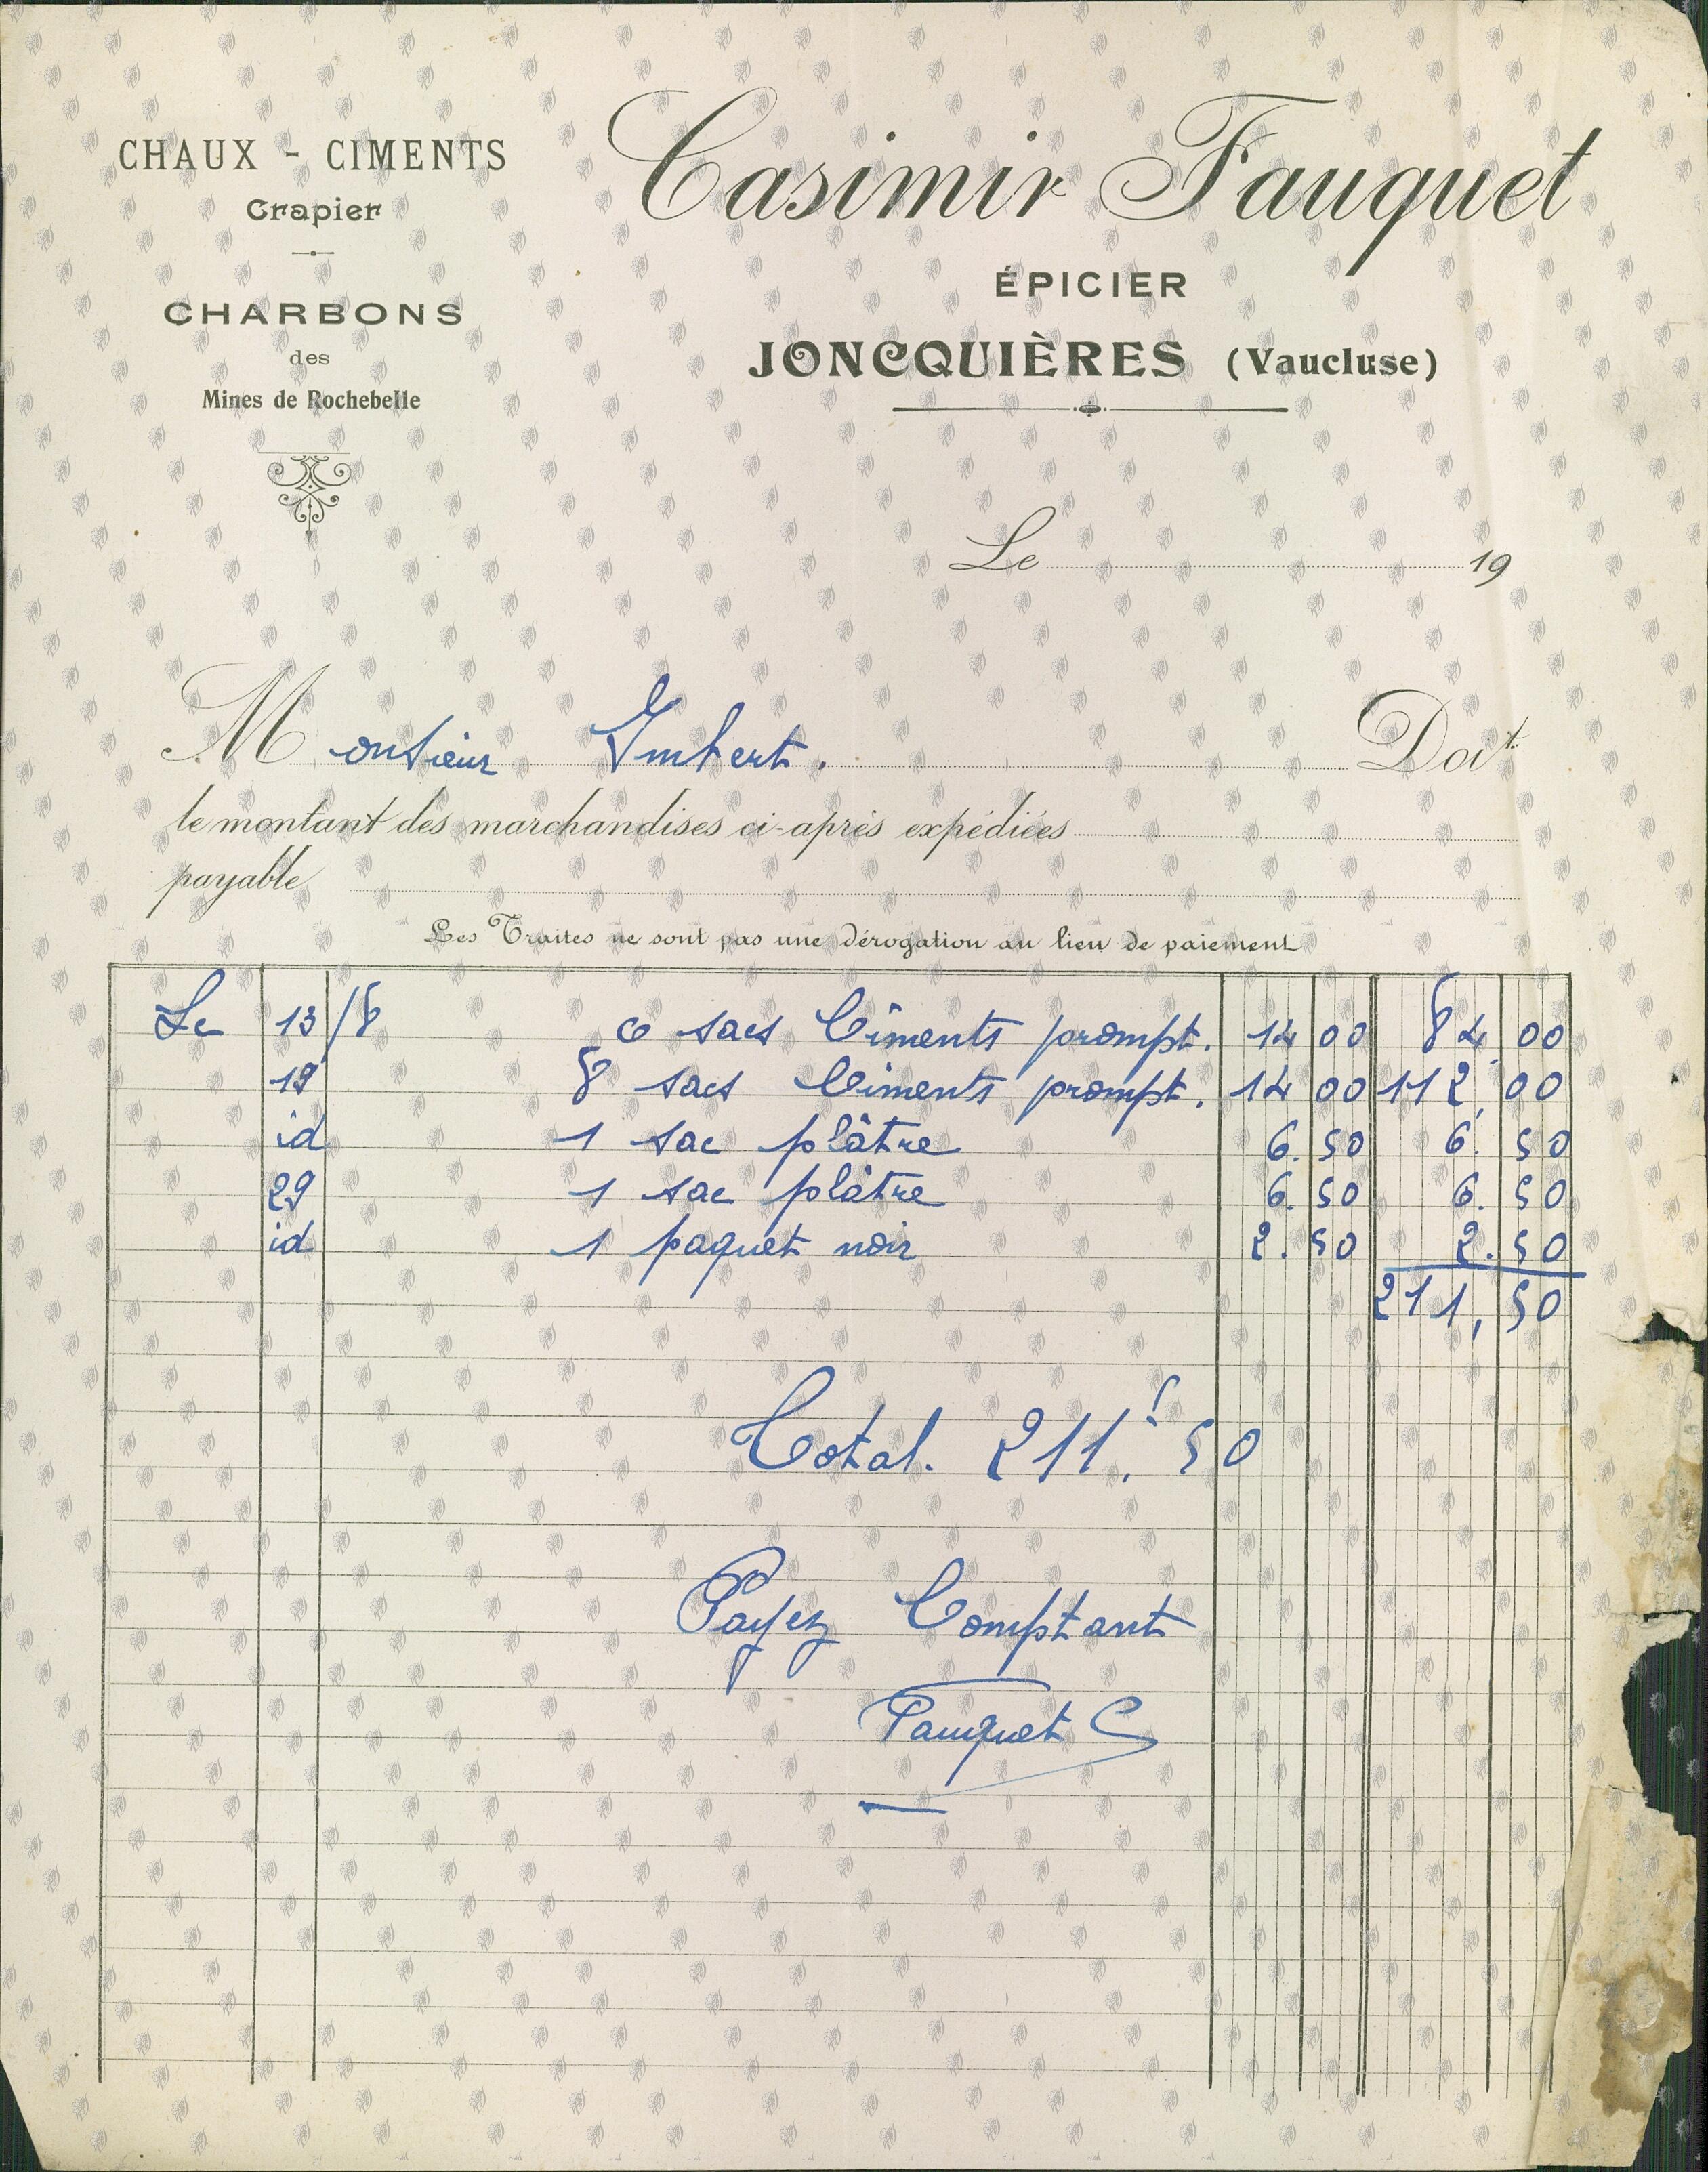 CHAUX - CIMENTS
Crapier
CHARBONS
des
Mines de Rochebelle
Casimir Fauquet
ÉPICIER
JONCQUIÈRES (Vaucluse)
Le 19
Monsieur Imbert. Doit
le montant des marchandises ci-après expédiées
payable
Les Traites ne sont pas une dérogation au lieu de paiement
Le 13/8 6 sacs Ciments prompt. 14 00 84. 00
19 8 sacs Ciments prompt. 14 00 112, 00
id 1 sac plâtre 6. 50 6. 50
29 1 sac plâtre 6. 50 6. 50
id 1 paquet noir 2. 50 2. 50
211, 50
Total. 211,f 50
Payez Comptant
Fauquet C